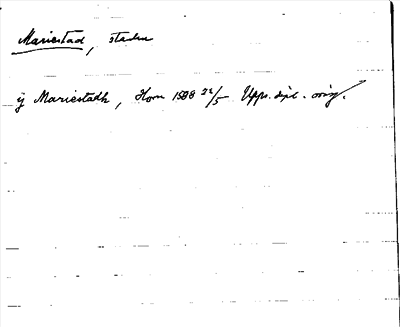 Mariestad, staden
ij Mariestadh, Horn 1588 22/5 Upps. dipl. orig.